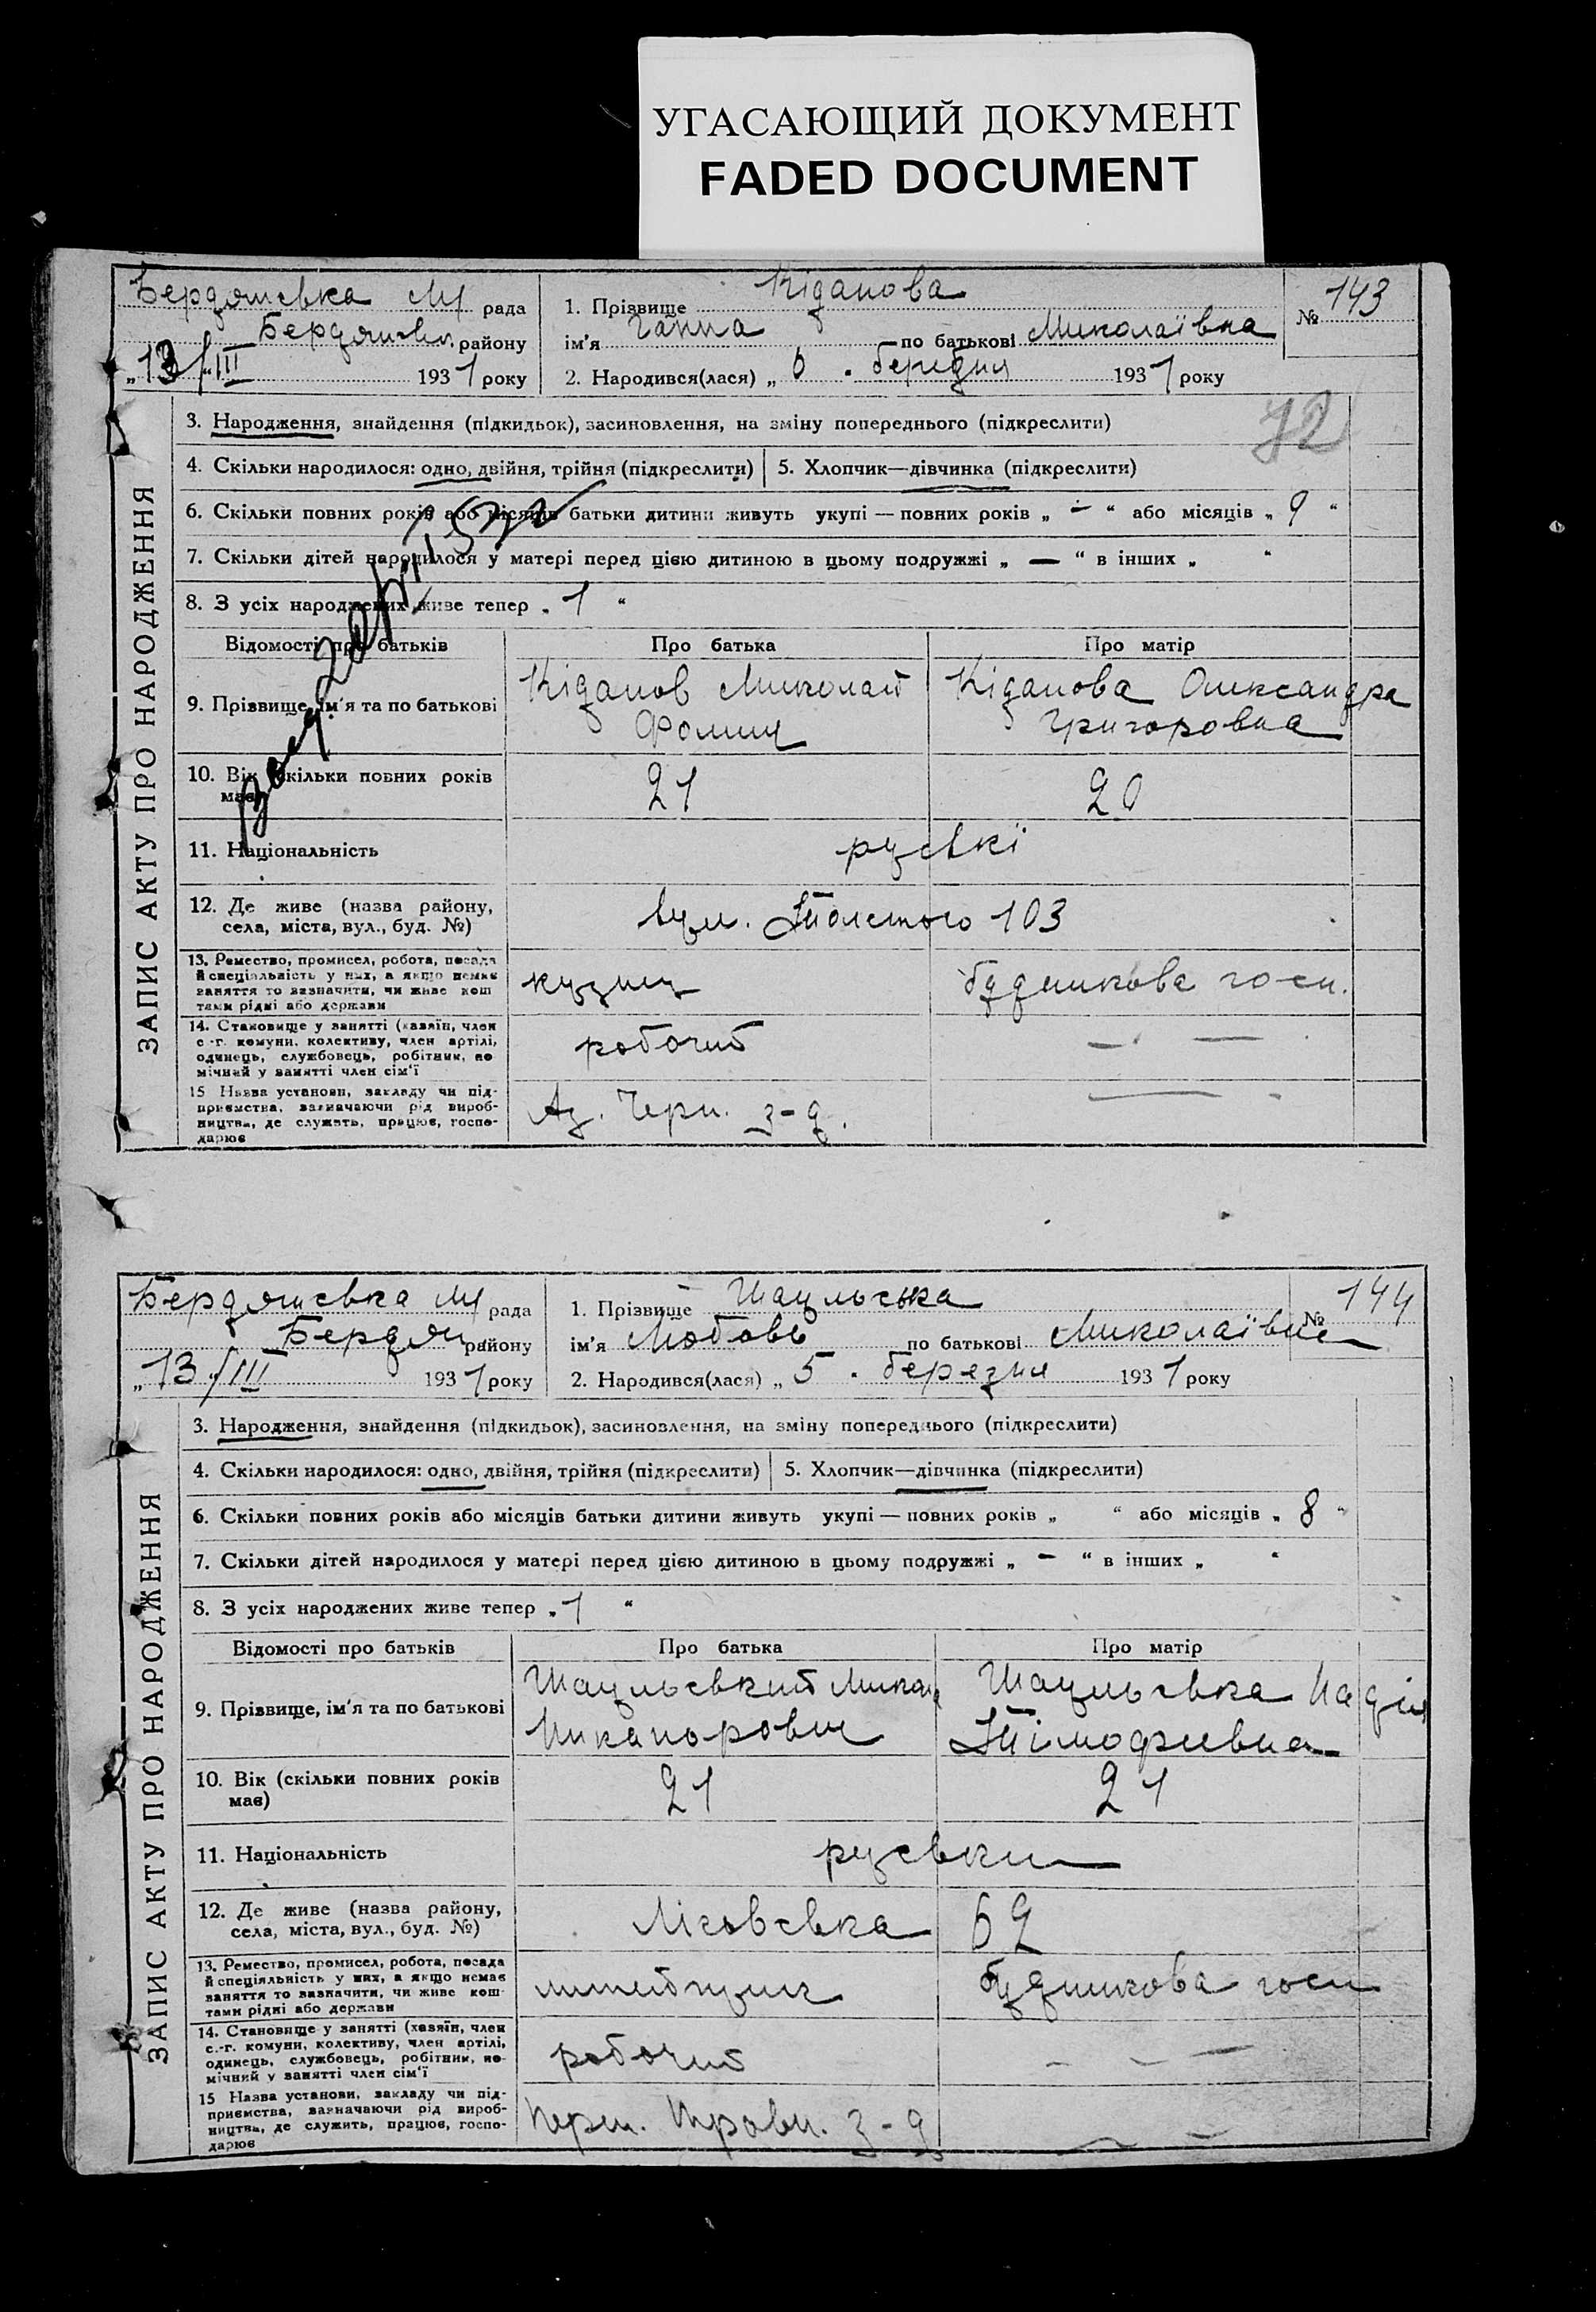 УГАСАЮЩИЙ ДОКУМЕНТ
FADED DOCUMENT
ЗАПИС АКТУ ПРО НАРОДЖЕННЯ
Бердянська рада
Бердянськ. району
„13/III 1931 року
1. Прізвище Кіданова
ім'я Ганна по батькові Миколаївна
2. Народився(лася) „6" березня 1931 року
№ 143
72
3. Народження, знайдення (підкидьок), засиновлення, на зміну попереднього (підкреслити)
4. Скільки народилося: одно, двійня, трійня (підкреслити) 5. Хлопчик—дівчинка (підкреслити)
6. Скільки повних років або місяців батьки дитини живуть укупі — повних років „ — “ або місяців „ 9 “
7. Скільки дітей народилося у матері перед цією дитиною в цьому подружжі „ — “ в інших „ “
8. З усіх народжених живе тепер „ 1 “
Відомості про батьків Про батька Про матір
9. Прізвище, ім'я та по батькові Кіданов Миколай Кіданова Олександра
Фомич Григоровна
10. Вік (скільки повних років має) 21 20
11. Національність руські
12. Де живе (назва району, села, міста, вул., буд. №) вул. Толстого 103
13. Ремество, промисел, робота, посада й спеціяльність у них, а якщо немає заняття то зазначити, чи живе коштами рідні або держави
кузнец будинкове госп.
14. Становище у занятті (хазяїн, член с.-г. комуни, колективу, член артілі, одинець, службовець, робітник, помічний у занятті член сім'ї
робочий — —
15 Назва установи, закладу чи підприємства, зазначаючи рід виробництва, де служить, працює, господарює
Аз. Черн. з-д. —
ЗАПИС АКТУ ПРО НАРОДЖЕННЯ
Бердянська рада
Бердян. району
„13/III 1931 року
1. Прізвище Шацильська
ім'я Любовь по батькові Миколаївна
2. Народився(лася) „5" березня 1931 року
№ 144
3. Народження, знайдення (підкидьок), засиновлення, на зміну попереднього (підкреслити)
4. Скільки народилося: одно, двійня, трійня (підкреслити) 5. Хлопчик—дівчинка (підкреслити)
6. Скільки повних років або місяців батьки дитини живуть укупі — повних років „ “ або місяців „ 8 “
7. Скільки дітей народилося у матері перед цією дитиною в цьому подружжі „ — “ в інших „ “
8. З усіх народжених живе тепер „ 1 “
Відомості про батьків Про батька Про матір
9. Прізвище, ім'я та по батькові Надія
Никанорович Тімофиевна
10. Вік (скільки повних років має) 21 21
11. Національність руськи
12. Де живе (назва району, села, міста, вул., буд. №) Ліговська 69
13. Ремество, промисел, робота, посада й спеціяльність у них, а якщо немає заняття то зазначити, чи живе коштами рідні або держави
литейщик будинкова госп
14. Становище у занятті (хазяїн, член с.-г. комуни, колективу, член артілі, одинець, службовець, робітник, помічний у занятті член сім'ї
робочий — — —
15 Назва установи, закладу чи підприємства, зазначаючи рід виробництва, де служить, працює, господарює
Перш. з-д — —